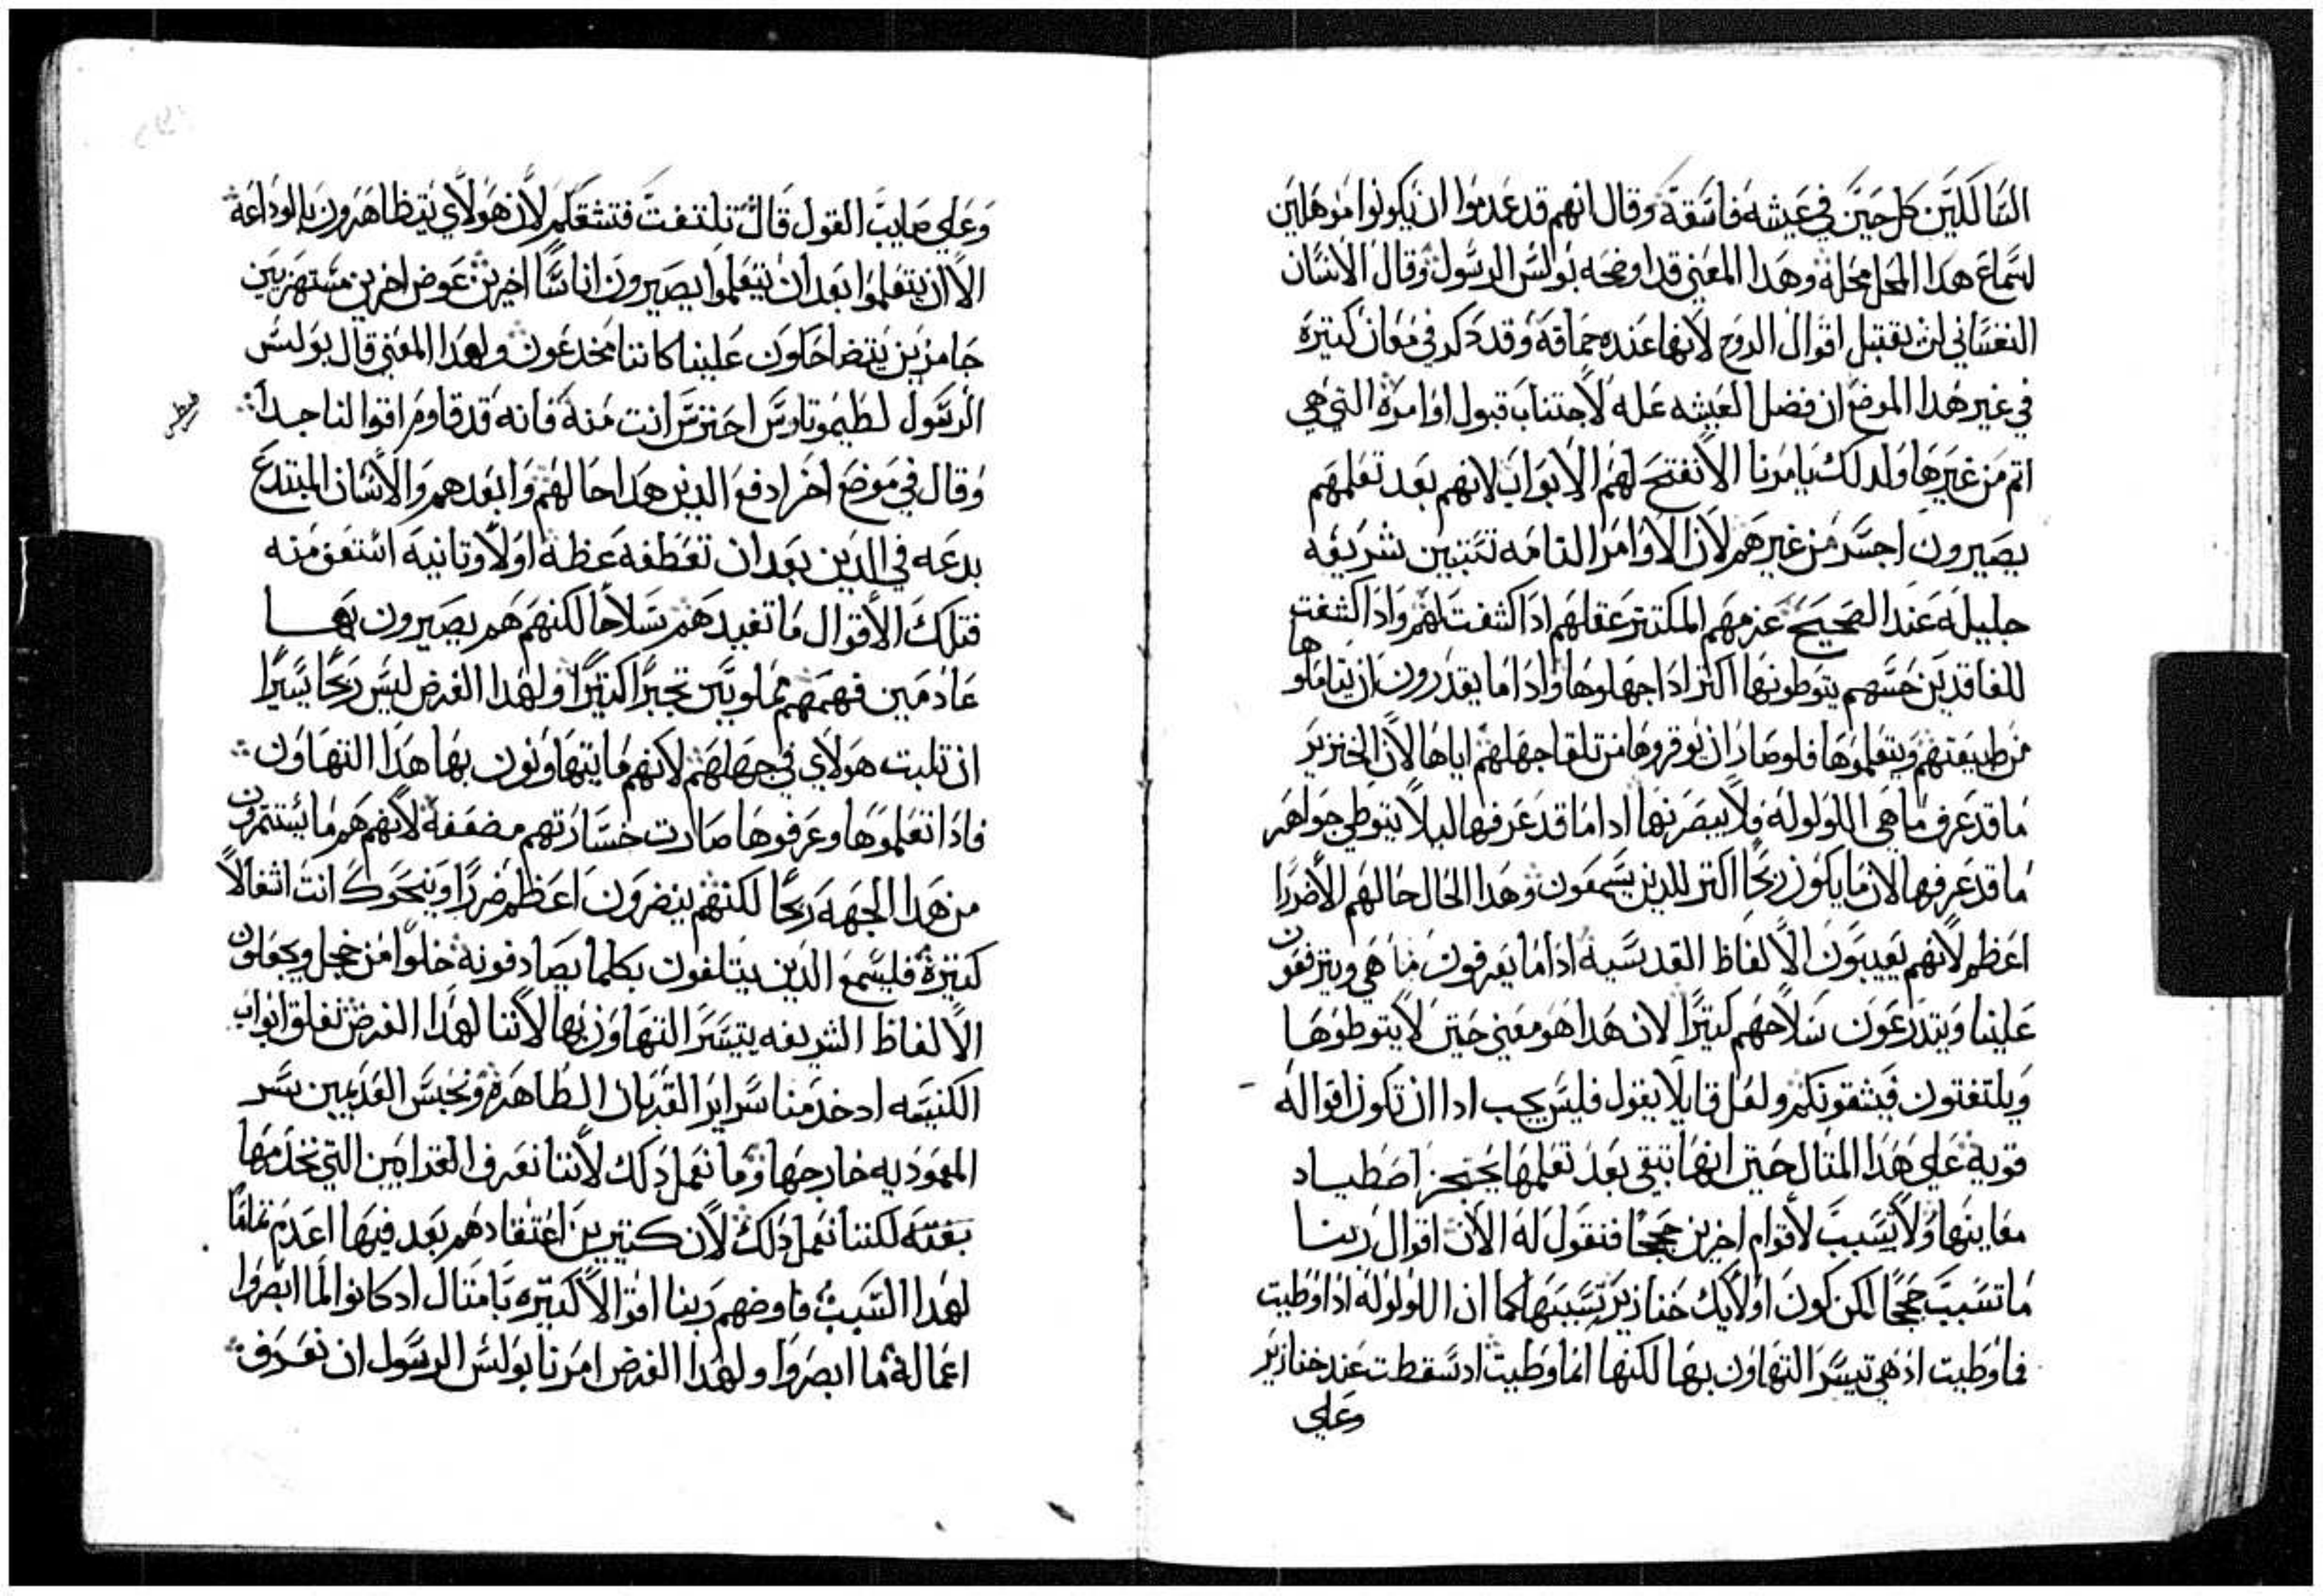 السالكين كل حين في عيشه فاسقة وقال انهم قد عدموا ان يكونوا موهلين
لسماع هدا المحل محله وهدا المعني قد اوضحه بولس الرسول وقال الانسان
النفساني لن يقتبل اقوال الروح لانها عنده حماقة وقد دكر في معان كتيرة
في غير هدا الموضع ان فضل العيشه عله لاجتناب قبول اوامرة التي هي
اتم من غيرها ولدلك يامرنا الا نفتح لهم الابواب لانهم بعد تعلمهم
يصيرون اجسر من غيرهم لان الاوامر التامه تتبين شريفه
جليله عند الصحيح عزمهم المكتنز عقلهم ادا كشفت لهم وادا كشفت
للفاقدين حسهم يتوطونها اكتر ادا جهلوها وادا ما يقدرون ان يتاملوها
من طبيعتهم ويتعلموها فلو صار ان يوقروها من تلقا جهلهم اياها لان الخنزير
ما قد عرف ما هي اللولوله فلا يبصرنها ادا ما قد عرفها ليلا يتوطي جواهر
ما قد عرفها لان ما يكون ربحا اكتر للدين يسمعون وهدا الحال حالهم الا ضررا
اعظم لانهم يعيبون الالفاظ القدسية ادا ما يعرفون ما هي ويترفعون
علينا ويتدرعون سلاحهم كتيرا لان هدا هو معني حتي لا يتوطوها
ويلتفتون فيشقونكم ولعل قايلا يقول فليس يجب ادا ان تكون اقواله
قوية علي هدا المتال حتي انها تبقي بعد تعلمها يحتجز اصطياد
معاينها ولا يسبب لاقوام اخرين حججا فنقول له الان اقوال ربنا
ما تسبب حججا لكن كون اولايك خنازير تسببها كما ان اللولوله ادا وطيت
فما وطيت اد هي تيسر التهاون بها لكنها انما وطيت اد سقطت عند خنازير
وعلي
وعلي صايب القول قال تلتفت فتشقكم لان هولاي يتظاهرون بالوداعة
الا ان يتعلموا بعد ان يتعلموا يصيرون اناسا اخرين عوض اخرين مستهزيين
جامزين يتضاحكون علينا كاننا مخدعون ولهدا المعني قال بولس
الرسول لطيموتاوس احترس انت منه فانه قد قاوم اقوالنا جدا
وقال في موضع اخر ادفع الدين هدا حالهم وابعدهم والانسان المبتدع
بدعه في الدين بعد ان تعظفه عظة اولا وتانيه استعف منه
فتلك الاقوال ما تفيدهم سلاحا لكنهم هم يصيرون بها
عادمين فهمهم مملويين تجبرا كتيرا ولهدا الغرض ليس ربحا يسيرا
ان تلبت هولاي في جهلهم لانهم ما يتهاونون بها هدا التهاون
فادا تعلموها وعرفوها صارت خسارتهم مضعفة لانهم هم ما يستتمرون
من هدا الجهه ربحا لكنهم ينضرون اعظم ضررا ويمنحوك انت اثغالا
كتيرة فليسمع الدين يتلفون بكلما يصادفونه خلوا من خجل ويجعلون
الالفاظ الشريفه يتيسر التهاون بها لاننا لهدا الغرض نغلق ابواب
الكنيسه اد خدمنا سراير القربان الطاهرة ونحبس العديمين سر
المعموديه خارجها وما نعمل دلك لاننا نعرف القرابين التي نخدمها
بغته لكننا نعمل دلك لان كتيرين اعتقادهم بعد فيها اعدم تماما
لهدا السبب فاوضهم ربنا اقوالا كتيره بامتال اد كانوا لما ابصروا
اعماله ما ابصروا ولهدا الغرض امرنا بولس الرسول ان نعرف